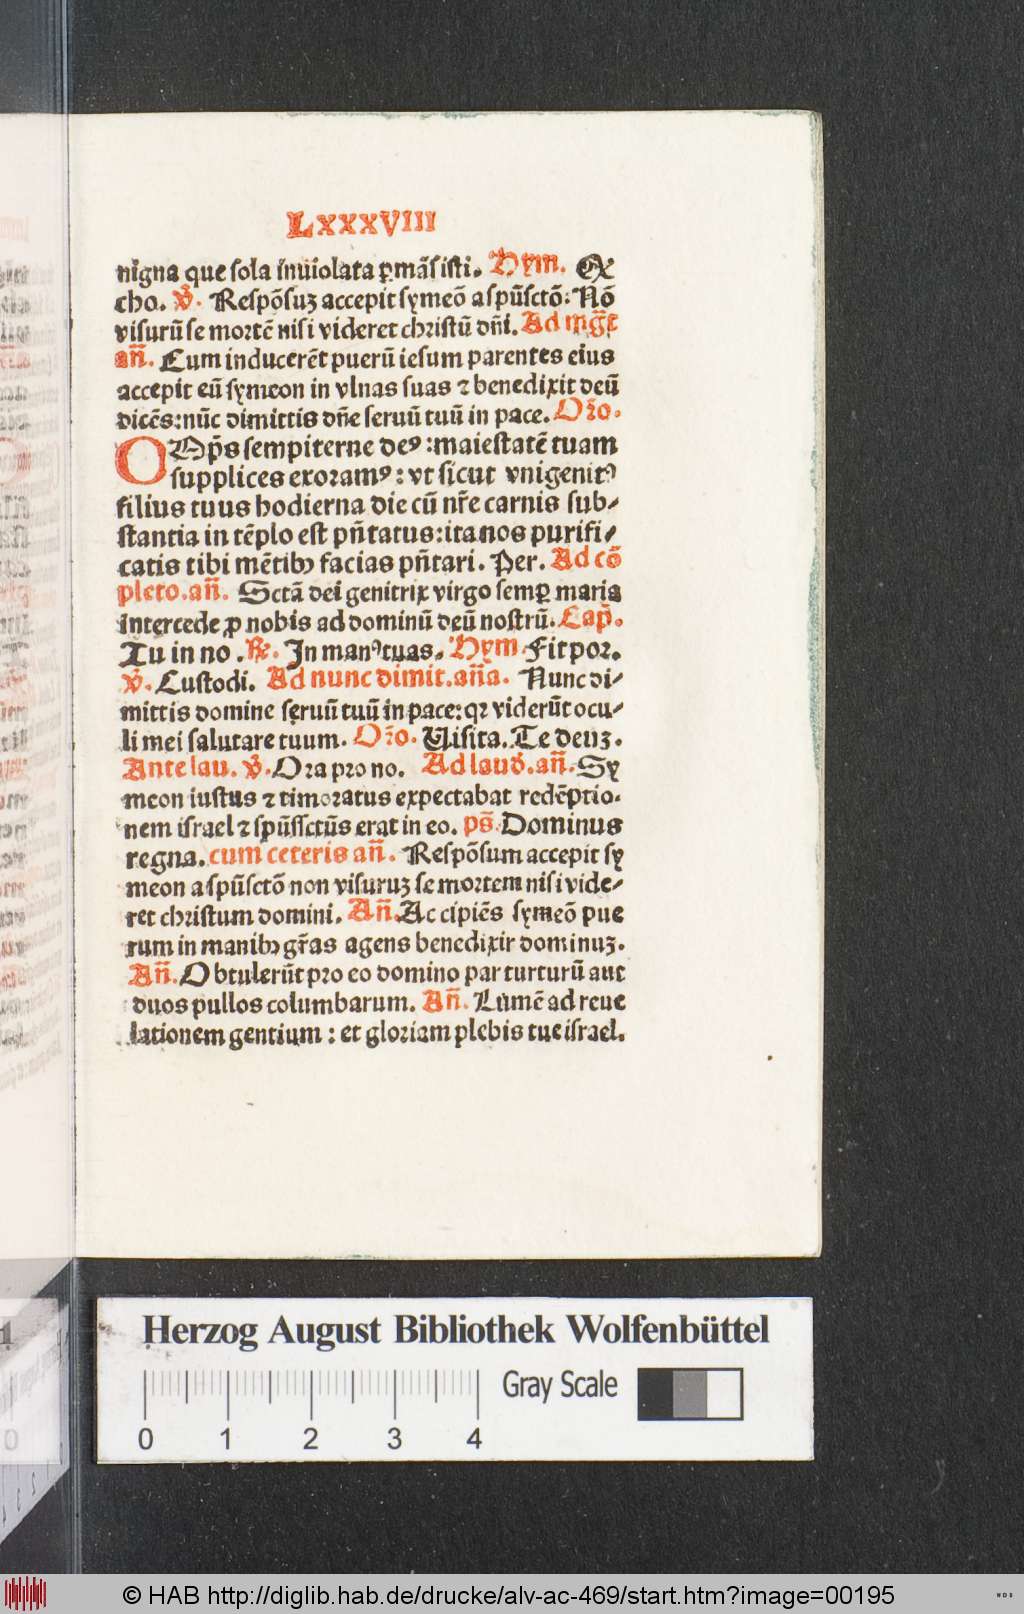 LXXXVIII
nigna que sola inuiolata ꝑmãsisti. Hym. Ex
cho. ꝟ. Respõsuʒ accepit symeõ a spũsctõ: Nõ
visurũ se mortẽ nisi videret christũ dñi. Ad mgᷓt
añ. Cum inducerẽt puerũ iesum parentes eius
accepit eũ symeon in vlnas suas ⁊ benedixit deũ
dicẽs: nũc dimittis dñe seruũ tuũ in pace. Oꝛ̃o.
OMp̃s sempiterne deꝰ: maiestatẽ tuam
supplices exoramꝰ: vt sicut vnigenitꝰ
filius tuus hodierna die cũ nr̃e carnis sub⸗
stantia in tẽplo est pñtatus: ita nos purifi⸗
catis tibi mẽtibꝫ facias pñtari. Per. Ad cõ
pleto. añ. Sctã dei genitrix virgo semꝑ maria
intercede ꝓ nobis ad dominũ deũ nostrũ. Cap̃.
Tu in no. ℞. In manꝰ tuas. Hym. Fit por.
ꝟ. Custodi. Ad nunc dimit. añã. Nunc di⸗
mittis domine seruũ tuũ in pace: qꝛ viderũt ocu⸗
li mei salutare tuum. Oꝛ̃o. Uisita. Te deuʒ.
Ante lau. ꝟ. Ora pro no. Ad laud̃. añ. Sy
meon iustus ⁊ timoratus expectabat redẽptio⸗
nem israel ⁊ spũssctũs erat in eo. ps̃. Dominus
regna. cum ceteris añ. Respõsum accepit sy
meon a spũsctõ non visuruʒ se mortem nisi vide⸗
ret christum domini. Añ. Accipiẽs symeõ pue
rum in manibꝫ gr̃as agens benedixit dominuʒ.
Añ. Obtulerũt pro eo domino par turturũ aut
duos pullos columbarum. Añ. Lumẽ ad reue
lationem gentium: et gloriam plebis tue israel.
Herzog August Bibliothek Wolfenbüttel
Gray Scale
0 1 2 3 4
© HAB http://diglib.hab.de/drucke/alv-ac-469/start.htm?image=00195